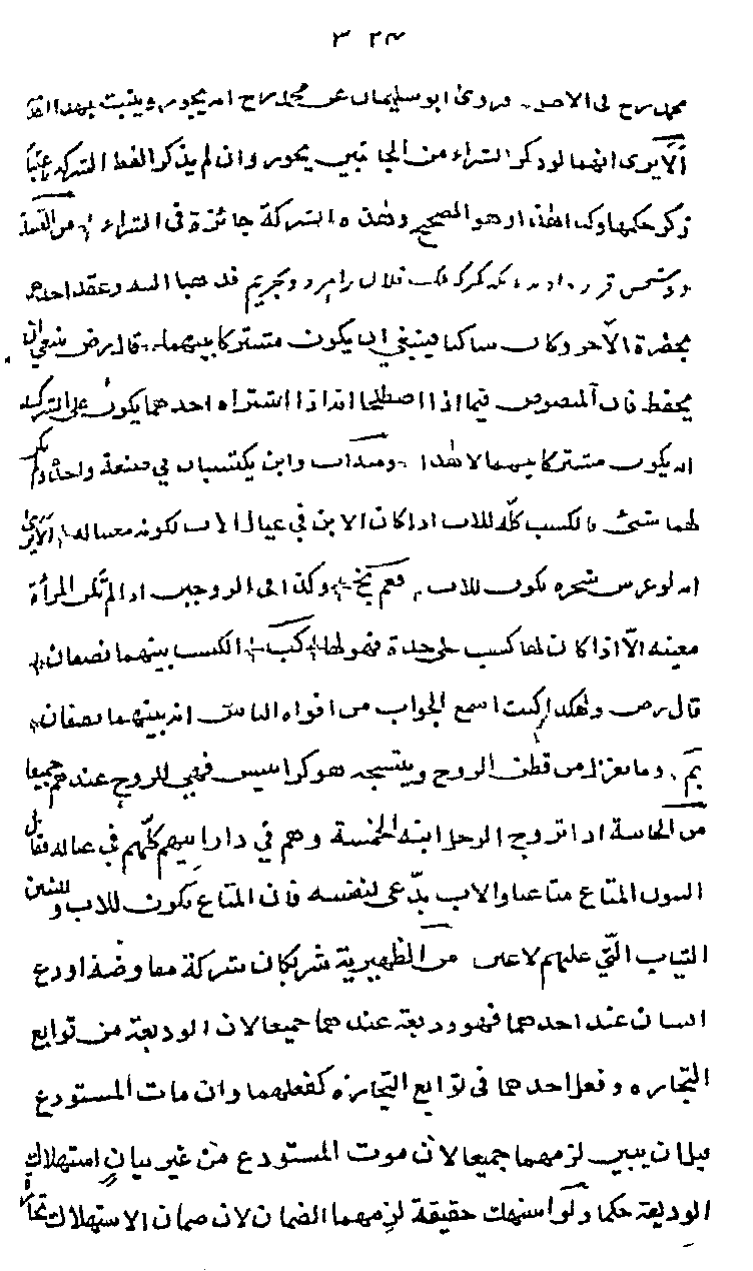 ٣٢٤
محمد رح فى الاصل وروى ابو سليمان عن محمد رح انه يجوز ويثبت بهذا
ألا يرى انهما لو ذكرا الشراء من الجانبين يجوز وان لم يذكرا لفظ الشركة
ذكر حكمها وكذا هذا وهو الصحيح وهذه الشركة جائزة فى الشراء من
وعقد احدهما
بحضرة الآخر وكان ساكتا فينبغي ان يكون مشتركا بينهما قال رض ينبغي ان
يحفظ فان المنصوص فيما اذا اصطلحا انه اذا اشتراه احدهما يكون على الشركة
انه يكون مشتركا بينهما لا هذا واب وابن يكتسبان في صنعة واحدة ولم يكن
لهما شئ فالكسب كله للاب اذا كان الابن في عيال الاب لكونه معينا له ألا يرى
انه لو غرس شجرة يكون للاب قعم بخ وكذا فى الزوجين اذا لم تكن المرأة
معينه الا اذا كان لها كسب على حدة فهو لها كب الكسب بينهما نصفان
قال رض وهكذا كنت اسمع الجواب من افواه الناس انه بينهما نصفان
بم وما تغزل من قطن الزوج وينسجه هو كرابيس فهي للزوج عندهم جميعا
من اذا تزوج الرجل ابنه الخمسة وهم في دار ابيهم كلهم في عياله فقال
البنون المتاع متاعنا والاب يدعى لنفسه فان المتاع يكون للاب وللبنين
الثياب التي عليهم لا غير من الظهيرية شريكان شركة مفاوضة اودع
انسان عند احدهما فهو وديعة عندهما جميعا لان الوديعة من توابع
التجارة وفعل احدهما فى توابع التجارة كفعلهما وان مات المستودع
قبل ان يبين لزمهما جميعا لان موت المستودع من غير بيان استهلاك
الوديعة حكما ولو استهلك حقيقة لزمهما الضمان لان ضمان الاستهلاك